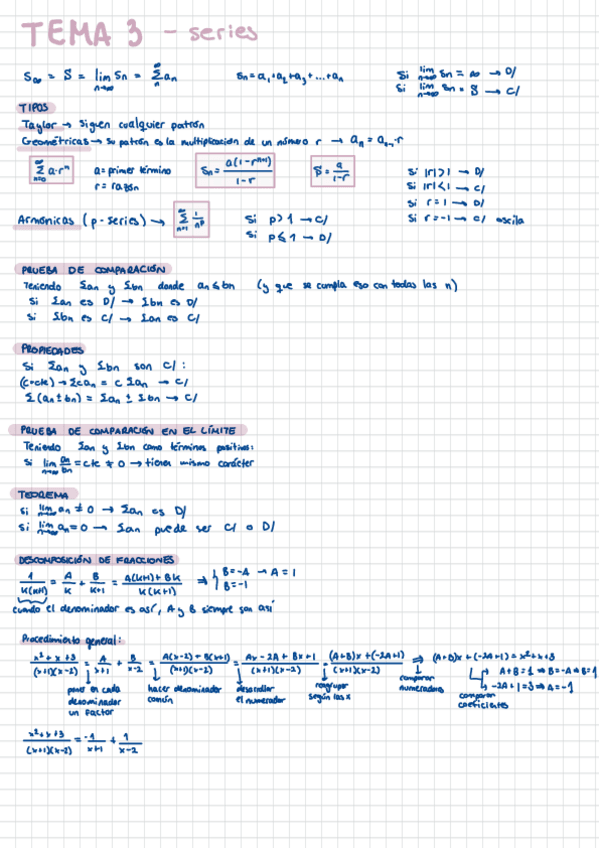 TEMA 3 - series
S∞ = S = lim n→∞ Sn = ∞ Σ n an
Sn = a₁ + a₂ + a₃ + ... + an
Si lim n→∞ Sn = ∞ → D/
Si lim n→∞ Sn = S → C/
TIPOS
Taylor → Siguen cualquier patrón
Geométricas → Su patrón es la multiplicación de un número r → an = an-1 · r
∞ Σ n=0 a·rⁿ
a = primer término
r = razón
Sn = a(1-rⁿ⁺¹) / 1-r
S = a / 1-r
Si |r| > 1 → D/
Si |r| < 1 → C/
Si r = 1 → D/
Si r = -1 → C/ oscila
Armónicas (p-series) → ∞ Σ n=1 1/nᵖ
Si p > 1 → C/
Si p ≤ 1 → D/
PRUEBA DE COMPARACIÓN
Teniendo Σan y Σbn donde an ≤ bn (y que se cumpla eso con todas las n)
Si Σan es D/ → Σbn es D/
Si Σbn es C/ → Σan es C/
PROPIEDADES
Si Σan y Σbn son C/ :
(c=cte) → Σcan = c Σan → C/
Σ(an ± bn) = Σan ± Σbn → C/
PRUEBA DE COMPARACIÓN EN EL LÍMITE
Teniendo Σan y Σbn como términos positivos:
Si lim n→∞ an/bn = cte ≠ 0 → tienen mismo carácter
TEOREMA
Si lim n→∞ an ≠ 0 → Σan es D/
Si lim n→∞ an = 0 → Σan puede ser C/ o D/
DESCOMPOSICIÓN DE FRACCIONES
1 / K(K+1) = A/K + B/K+1 = A(K+1)+BK / K(K+1) ⇒ { B=-A → A=1
B=-1
cuando el denominador es así, A y B siempre son así
Procedimiento general:
x²+x+3 / (x+1)(x-2) = A/x+1 + B/x-2 = A(x-2)+B(x+1) / (x+1)(x-2) = Ax-2A+Bx+1 / (x+1)(x-2) = (A+B)x+(-2A+1) / (x+1)(x-2) ⇒ (A+B)x+(-2A+1) = x²+x+3
A+B=1 ⇒ B=-A ⇒ B=1
-2A+1=3 ⇒ A=-1
pones en cada denominador un factor
hacer denominador común
desarrollar el numerador
reagrupar según las x
comparar numeradores
comparar coeficientes
x²+x+3 / (x+1)(x-2) = -1/x+1 + 1/x-2